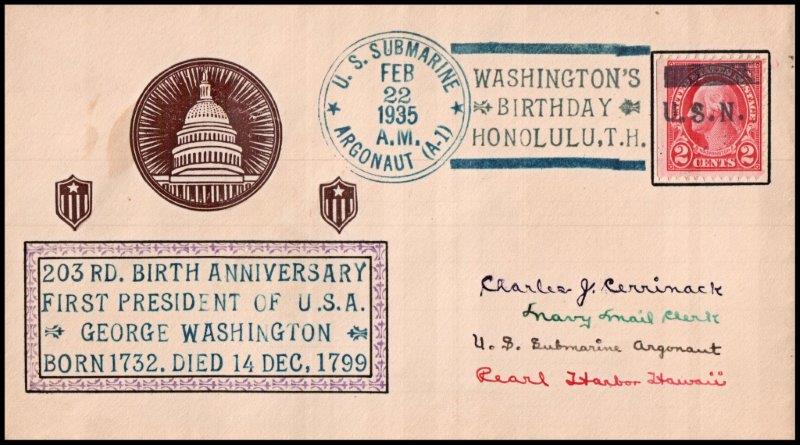 U. S. SUBMARINE
FEB
22
1935
A.M.
ARGONAUT (A-1)
WASHINGTON'S
BIRTHDAY
HONOLULU, T.H.
U.S.N.
2 CENTS 2
203 RD. BIRTH ANNIVERSARY
FIRST PRESIDENT OF U.S.A.
GEORGE WASHINGTON
BORN 1732. DIED 14 DEC, 1799
Charles J. Cerrinack
Navy Mail Clerk
U. S. Submarine Argonaut
Pearl Harbor Hawaii